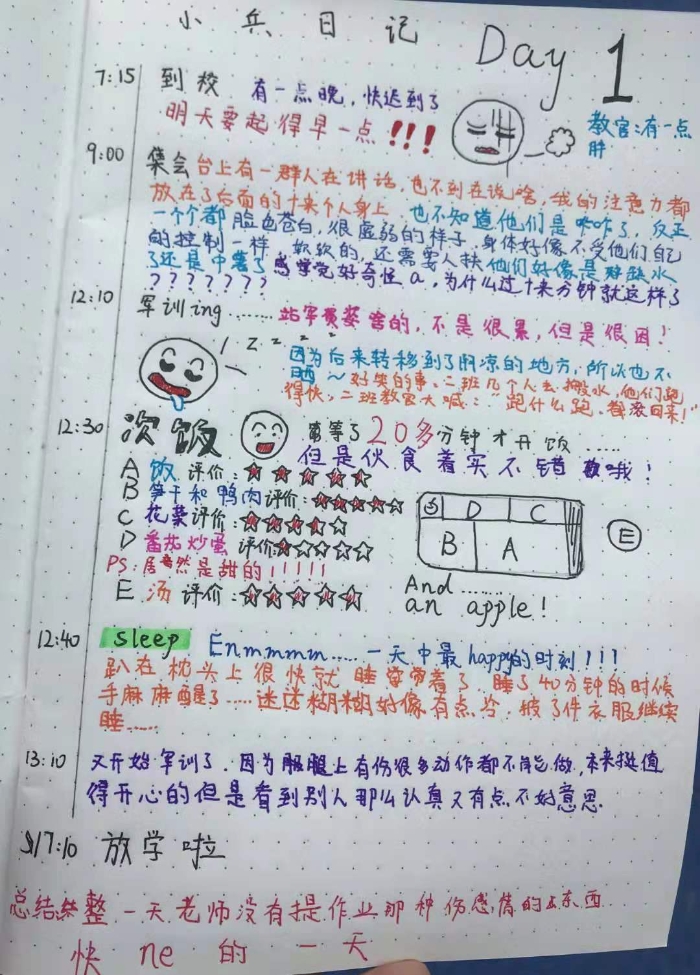 小兵日记 Day 1
7:15 到校 有一点晚，快迟到了
明天要起得早一点!!!
教官:有一点
胖
9:00 集会 台上有一群人在讲话，也不到在说啥，我的注意力都
放在了后面的十来个人身上 也不知道他们是咋咋了，反正
一个个都脸色苍白，很虚弱的样子，身体好像不受他们自己
的控制一样，软软的，还需要人扶他们好像是缺水
了还是中暑了感觉觉好奇怪a，为什么过十来分钟就这样了
???????
12:10 军训ing........站军姿的，不是很累，但是很困!
1 Z z z z
因为后来转移到了阴凉的地方，所以也不
晒~好笑的事、二班几个人去搬水，他们跑
得快，二班教官大喊:“跑什么跑、都滚回来!”
12:30 次饭 等了20多分钟才开饭......
但是伙食着实不错哦!
A 饭 评价:☆☆☆☆☆
B 笋干和鸭肉评价:☆☆☆☆☆
C 花菜评价:☆☆☆☆☆
D 番茄炒蛋 评价:☆☆☆☆☆
PS:居然是甜的!!!!!
E 汤 评价:☆☆☆☆☆
D C
B A
E
And........
an apple!
12:40 sleep Enmmmm.....一天中最happy的时刻!!!
趴在枕头上很快就睡着了，睡了40分钟的时候
手麻麻醒了.....迷迷糊糊好像有点冷，披了件衣服继续
睡......
13:10 又开始军训了、因为腿上有伤很多动作都不能做，本来挺值
得开心的但是看到别人那么认真又有点不好意思
17:10 放学啦
总结 整一天老师没有提作业那种伤感情的东西...
快ne的一天